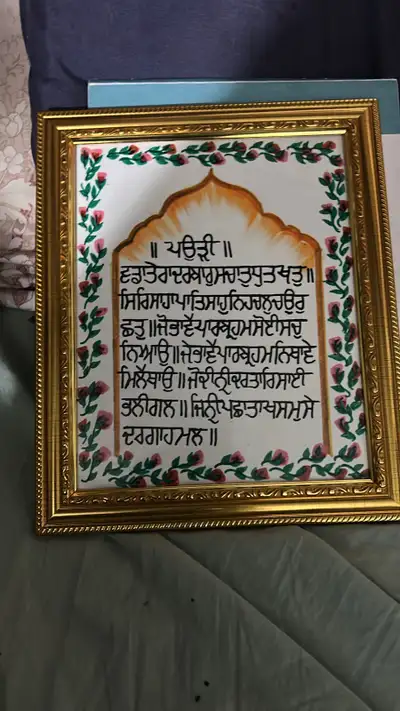 ॥ ਪਉੜੀ ॥
ਵਡਾਤੇਰਾਦਰਬਾਰੁਸਚਾਤੁਧੁਤਖਤੁ॥
ਸਿਰਿਸਾਹਾਪਾਤਿਸਾਹੁਨਿਹਚਲਚਉਰ
ਛਤੁ॥ਜੋਭਾਵੈਪਾਰਬ੍ਰਹਮਸੋਈਸਚੁ
ਨਿਆਉ॥ਜੇਭਾਵੈਪਾਰਬ੍ਰਹਮਨਿਥਾਵੇ
ਮਿਲੈਥਾਉ॥ਜੋਕੀਨੑੀਕਰਤਾਰਿਸਾਈ
ਭਲੀਗਲ॥ਜਿਨੑੀਪਛਾਤਾਖਸਮੁਸੇ
ਦਰਗਾਹਮਲ॥